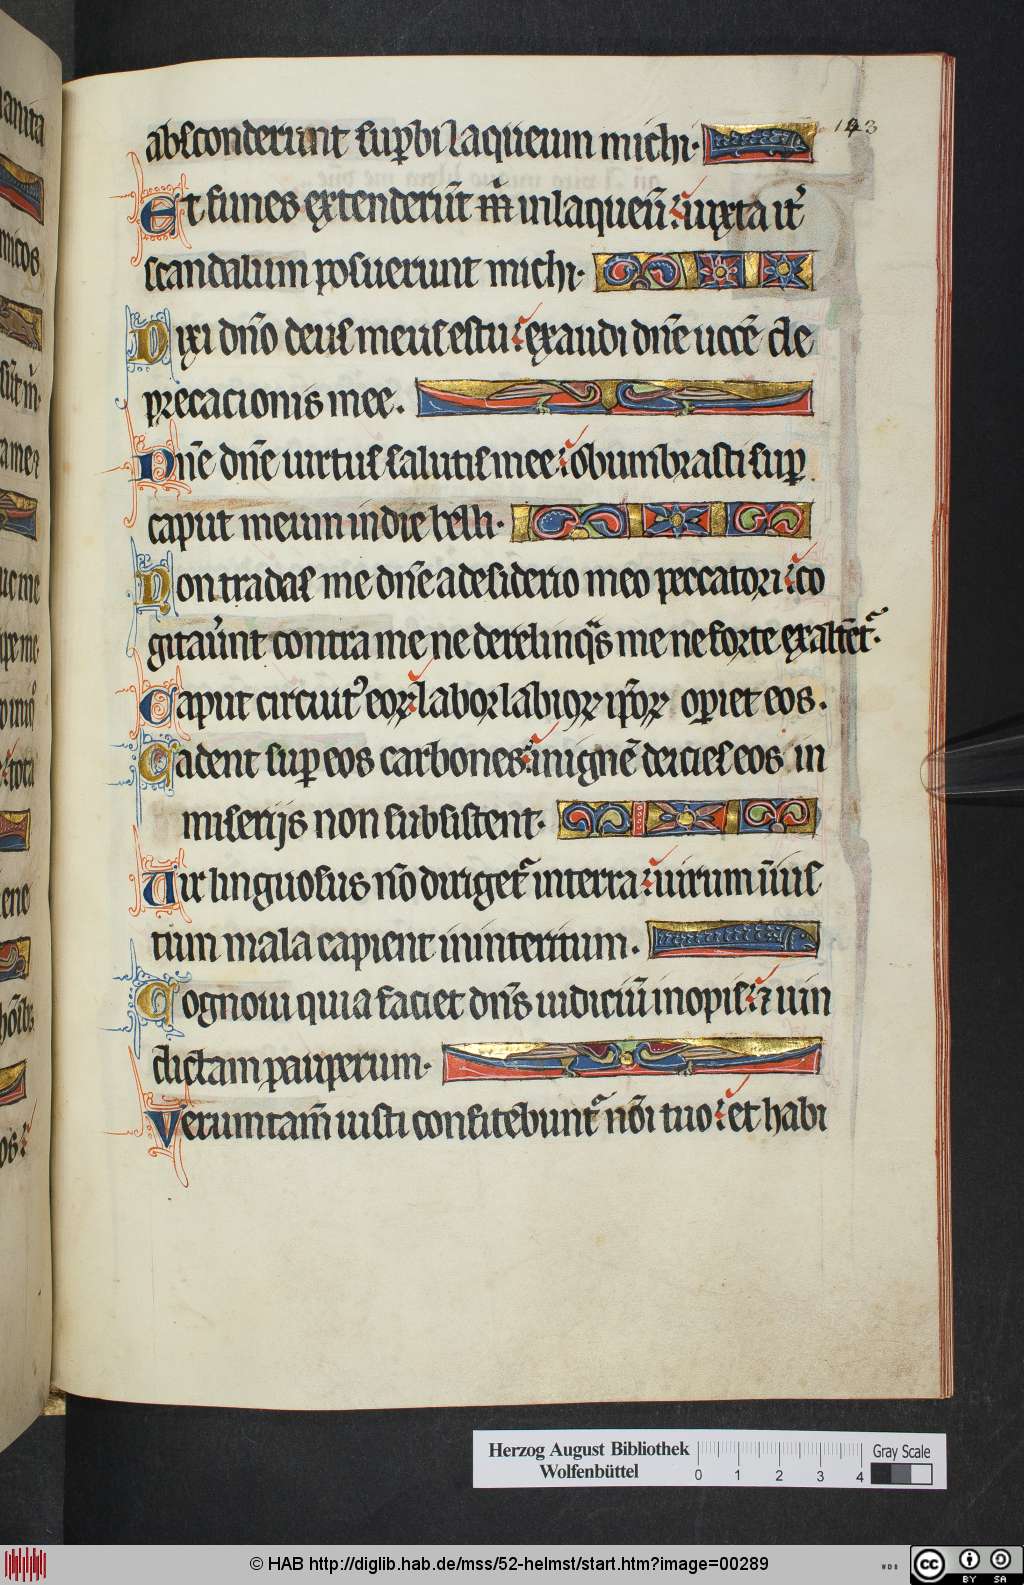 absconderunt sup̱bi laqueum michi·
143
Et funes extenderūt m̄ in laqueū : iuxta it᷑
scandalum posuerunt michi·
Dixi dn̄o deus meus es tu : exaudi dn̄e uocē de
precacionis mee.
Dn̄e dn̄e uirtus salutis mee : obumbrasti sup̱
caput meum in die belli·
Non tradas me dn̄e a desiderio meo peccatori : co
gitau᷑unt contra me ne derelinq̄s me ne forte exaltēt᷑·
Caput circuit᷒ eoꝝ : labor labioꝝ ip̄oꝝ op̱iet eos.
Cadent sup̱ eos carbones : in ignē deicies eos in
miserijs non subsistent·
Uir linguosus nō diriget᷑ in terra : uirum iniūs
tum mala capient in interitum.
Cognoui quia faciet dn̄s iudiciū inopis : ⁊ uin
dictam pauperum·
Verumtam̄ iusti confitebunt᷑ nōi tuo : et habi
Herzog August Bibliothek
Wolfenbüttel
0 1 2 3 4
Gray Scale
© HAB http://diglib.hab.de/mss/52-helmst/start.htm?image=00289
WDB
cc BY SA